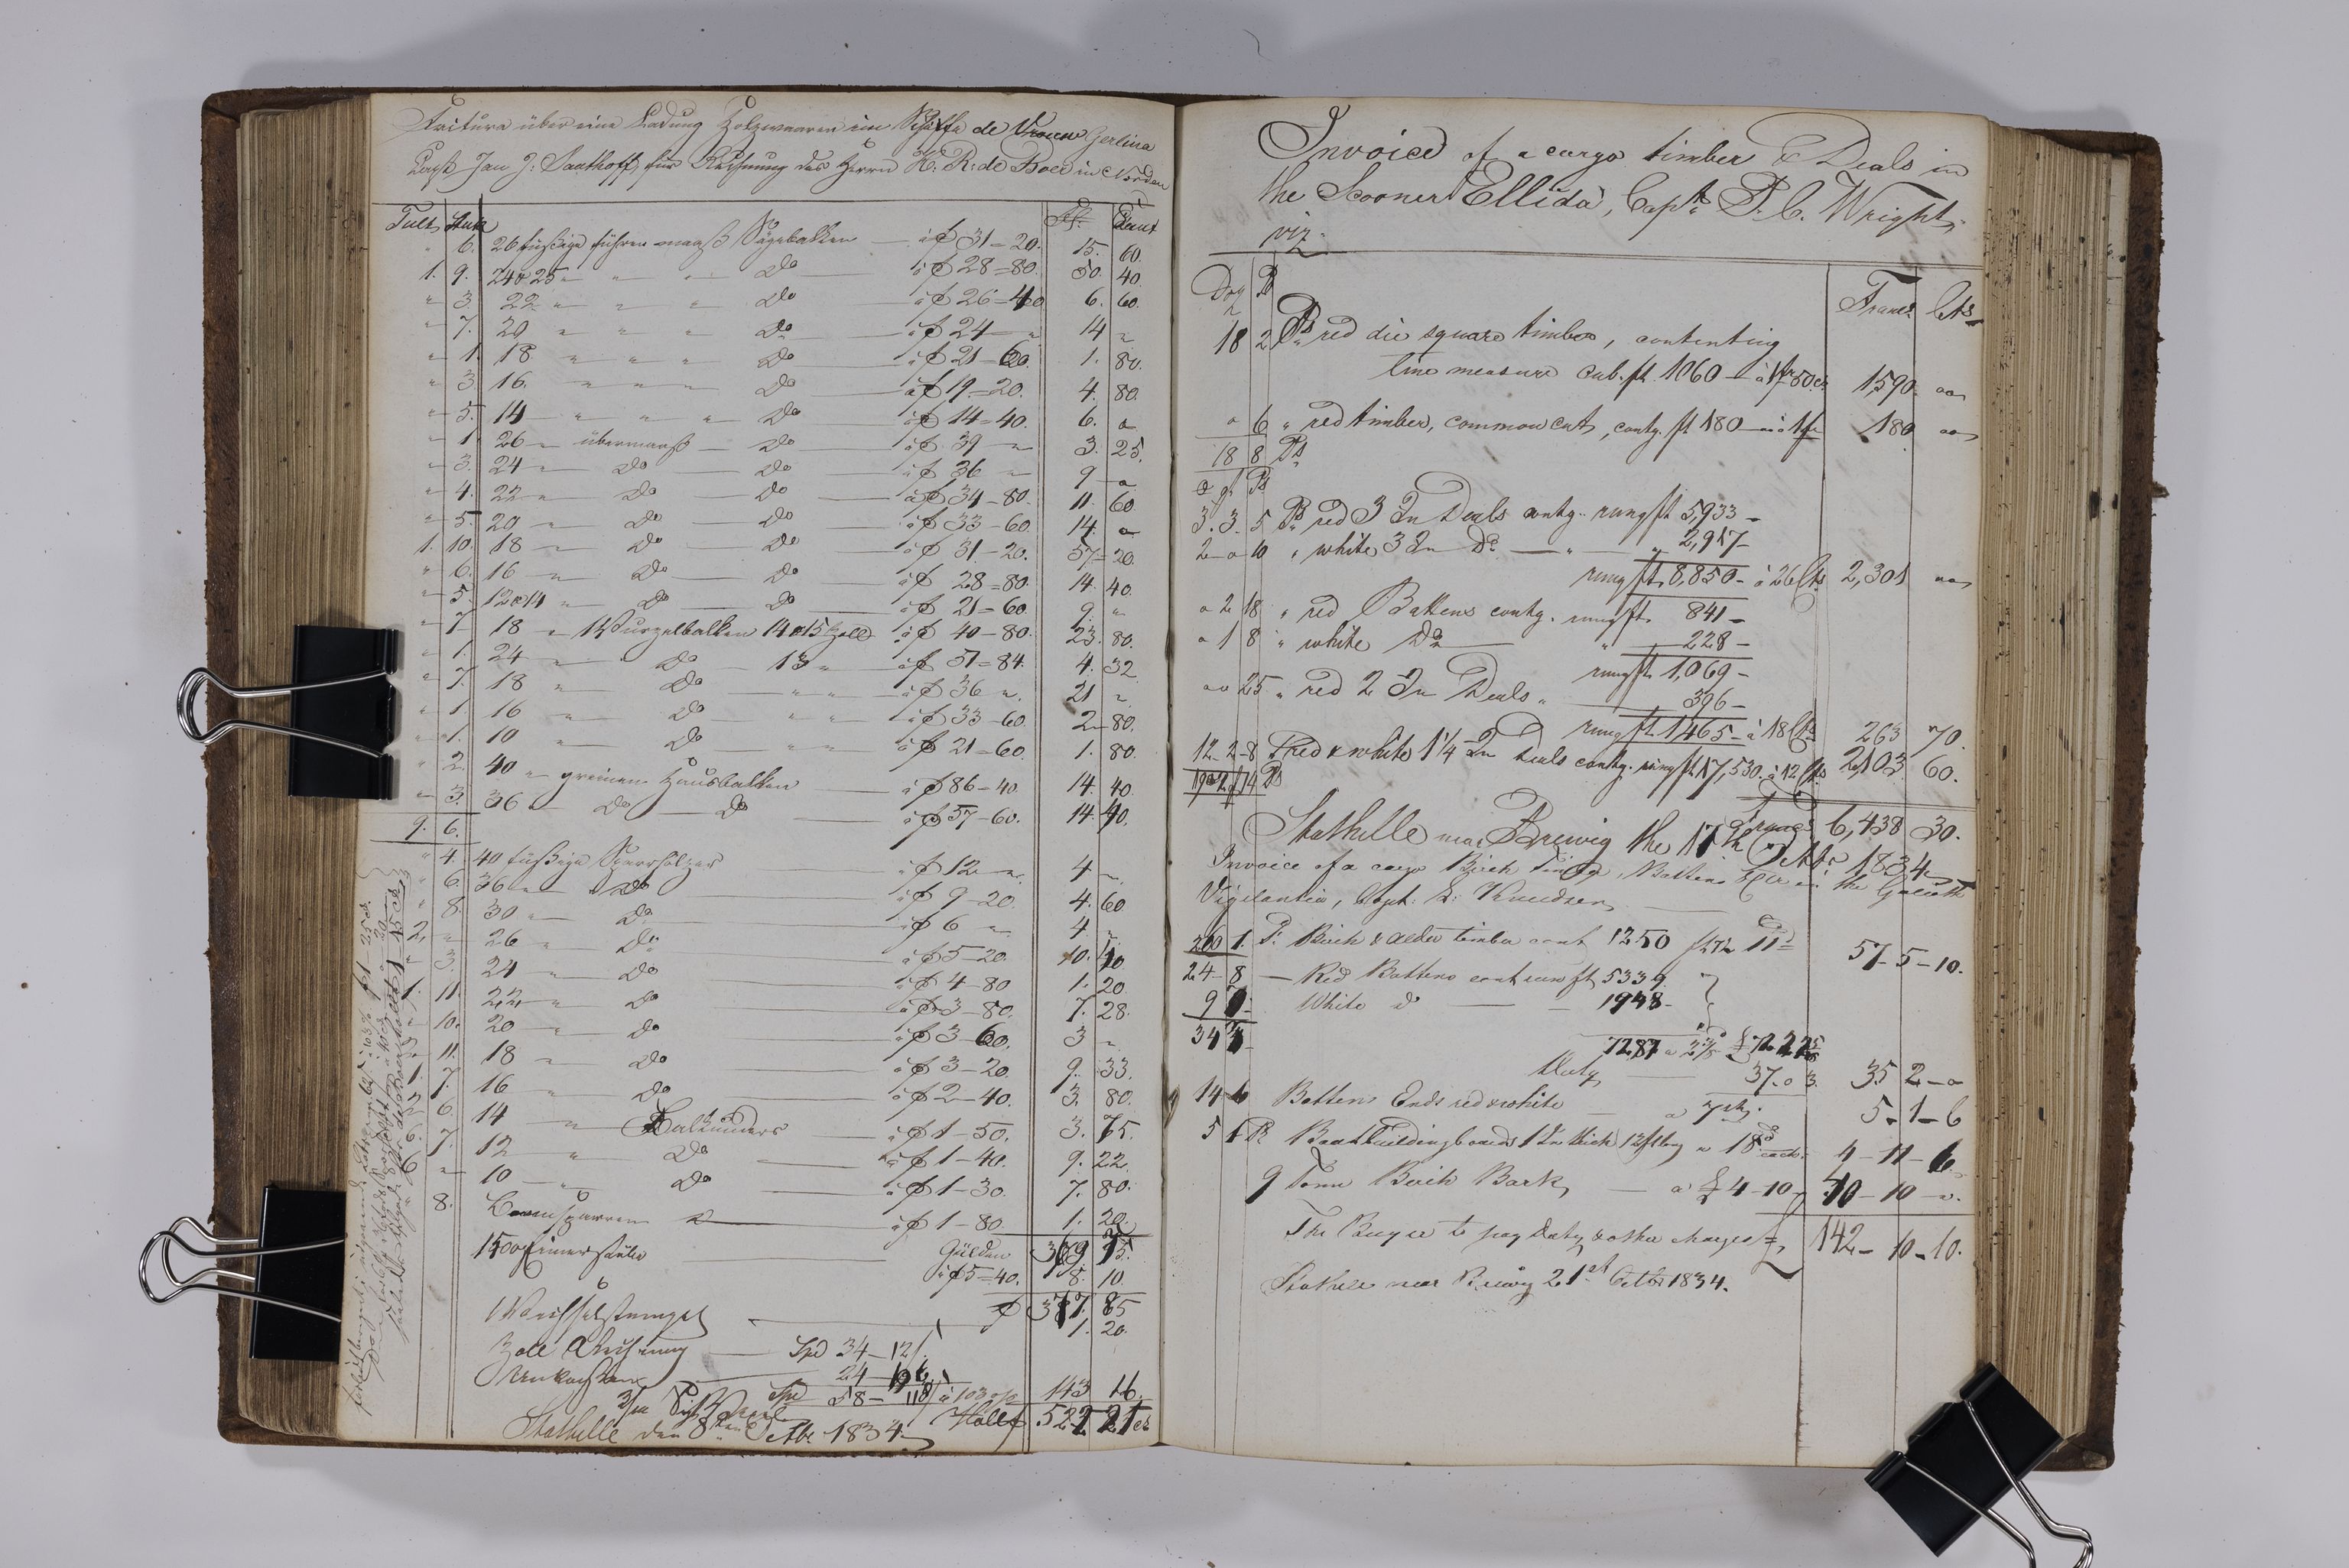 Factura über eine Ladung Holzwaaren im Schiffe de Vrouw Gerlina
Capt Jan J: Saathoff, für Rechnung des Herrn H: R: de Boer in Norden
Tult Stuk Cent
" 6. 26 füßige führen maaß Sägebalken à f 31=20. 15. 60.
1. 9. 24 & 25 " " " Do à f 28=80. 50. 40.
" 3. 22 " " " Do à f 26=40 6. 60.
" 7. 20 " " " Do à f 24 — " 14 "
" 1. 18 " " " Do à f 21=60. 1. 80.
" 3. 16 " " " Do à f 19=20. 4. 80.
" 5. 14 " " " Do à f 14=40. 6. "
" 1. 26 " übermaaß Do à f 39 " 3. 25.
" 3. 24 " Do Do à f 36 " 9 "
" 4. 22 " Do Do à f 34-80. 11. 60.
" 5. 20 " Do Do à f 33-60. 14. "
1. 10. 18 " Do Do à f 31-20. 57=20.
" 6. 16 " Do Do à f 28=80. 14. 40.
" 5. 12 & 14 " Do Do à f 21=60. 9. "
" 7. 18 " Wurzelbalken 14 & 15 Zoll à f 40-80. 23. 80.
" 1. 24 " Do 13 " à f 51=84. 4. 32.
" 7. 18 " Do " " à f 36 ". 21 "
" 1. 16 " Do " " à f 33-60. 2-80.
" 1. 10 " Do " " à f 21=60. 1. 80.
" 2. 40 " greinen Hausbalken à f 86-40. 14. 40.
" 3. 36 " Do Do à f 57-60. 14. 40.
9. 6.
" 4. 40 füßige Sparrhölzer à f 12 " 4 "
" 6. 36 " Do à f 9-20. 4. 60
" 8. 30 " Do à f 6 " 4 "
2. " 26 " Do à f 5-20. 10. 40
" 3. 24 " Do à f 4-80 1. 20
1. 11. 22 " Do à f 3-80. 7. 28.
" 10. 20 " Do à f 3-60. 3 "
11. 18 " Do à f 3-20. 9. 33.
7. 16 " Do à f 2-40. 3. 80.
6. 14 " à f 1-50. 3. 75.
7. 12 " Do à f 1-40. 9. 22.
" 10 " Do à f 1-30. 7. 80.
8. à f 1-80 1. 20.
Gulden 369 75.
1500 Eimerstäbe à f 5=40. 8. 10.
f 377. 85
Wechselstempel 1. 20.
Zoll Rechnung Spd 34-12
Unkosten 24
Spd 58-118 à 103 143 16.
Hollf 522 21 ct
Stathelle den 8ten Octbr 1834.
Invoice of a cargo timber & Deals in
the Scooner Ellida, Captn P. C. Wright,
viz.
Doz Ps
Francs Cts
18 2 Ps red die square timber, contenting
line measure Cub. ft. 1060 — à 1fr 50cs. 1,590. "
" 6 " red timber, common cut, contg. ft 180 — à 1fr 180 "
18 8 Ps
Ps
3. 3. 5 Ps red 3 In Deals contg. rung ft 5,933 —
2 — " 10 " white 3 In Do — " — " 2,917 —
rung ft 8,850 — à 26 Cts 2,301 "
" 2 18 " red Battens contg. rung ft. 841 —
" 1 8 " white Do — " 228 —
rung ft. 1,069 —
" " 25 " red 2 In Deals " 396 —
rung ft 1465 — à 18 Cts 263 70.
12 2 8 red & white 1 1/4 In Deals contg. rung ft 17,530. à 12 Cts 2,103 60.
Francs 6,438 30.
Stathelle near Brewig the 17th Octbr 1834
Invoice of a cargo Birch Timber, Battens &ce in the Galioth
Vigilantia, Capt: L: Knudsen
200 1. Ps Birch & alder timber cont 1250 ft à 11d 57-5-10.
24-8 — Red Battens cont run ft 5339.
9 White do — 1948.
34
7287
Duty 37. " 3. 35 2 — "
14 Batten Ends red & white à 7 5-1-6
5 Ps Boatbuildingboards 1 In thick 12 ft long à 18d each. 4-11-6
9 Tonn Birch Bark, — à £ 4-10, 40-10-".
The Buyer to pay Duty & other charges £ 142-10-10.
Stathelle near Brewig 21st Octbr 1834.